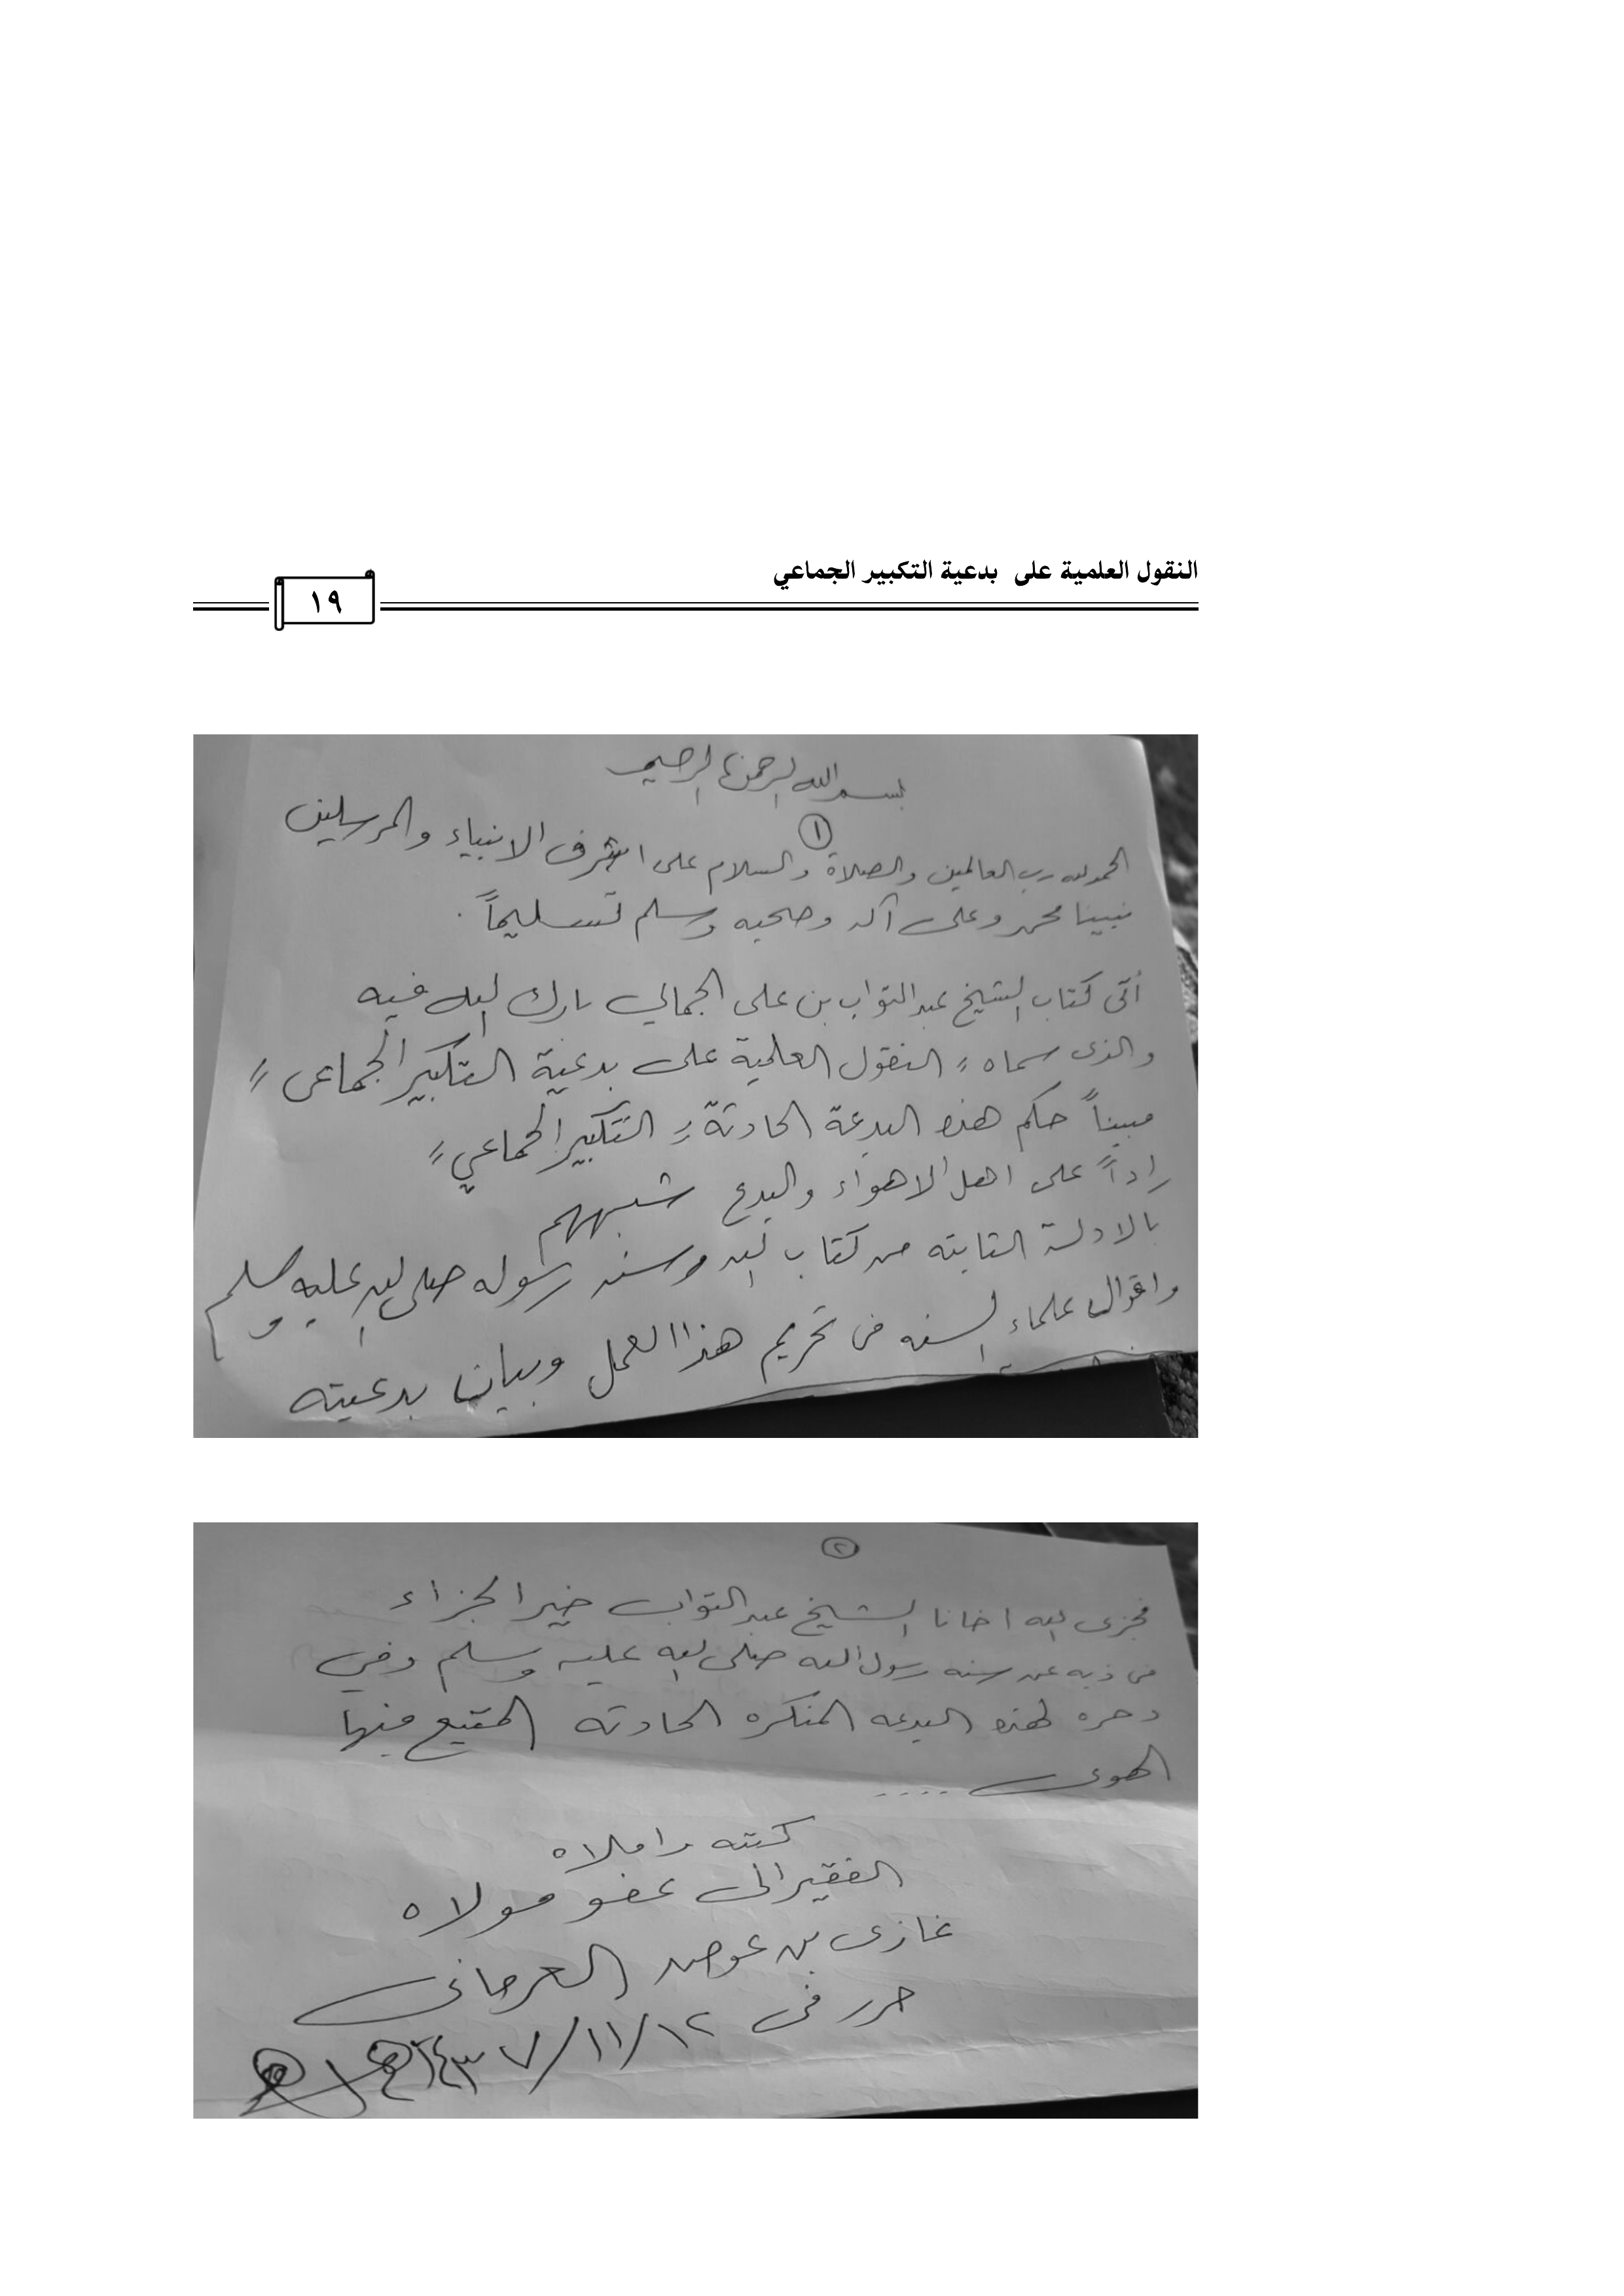 النقول العلمية على بدعية التكبير الجماعي
١٩
بسم الله الرحمن الرحيم
١
الحمد لله رب العالمين والصلاة والسلام على اشرف الانبياء والمرسلين
نبينا محمد وعلى آله وصحبه وسلم تسليماً .
أتى كتاب الشيخ عبد التواب بن على الجمالي بارك الله فيه
والذى سماه " النقول العلمية على بدعية التكبير الجماعى "
مبيناً حكم هذه البدعة الحادثة " التكبير الجماعي "
راداً على اهل الاهواء والبدع شبههم
بالادلة الثابته من كتاب الله وسنه رسوله صلى الله عليه وسلم
واقوال علماء السنه فى تحريم هذا العمل وبيان بدعيته
٢
فجزى الله اخانا الشيخ عبد التواب خير الجزاء
فى ذبه عن سنه رسول الله صلى الله عليه وسلم وفي
دحره لهذه البدعه المنكره الحادثه المتبع فيها
الهوى ....
كتبه واملاه
الفقير الى عفو مولاه
غازى بن عوض العرمانى
حرر فى ١٢/١١/١٤٣٧هـ